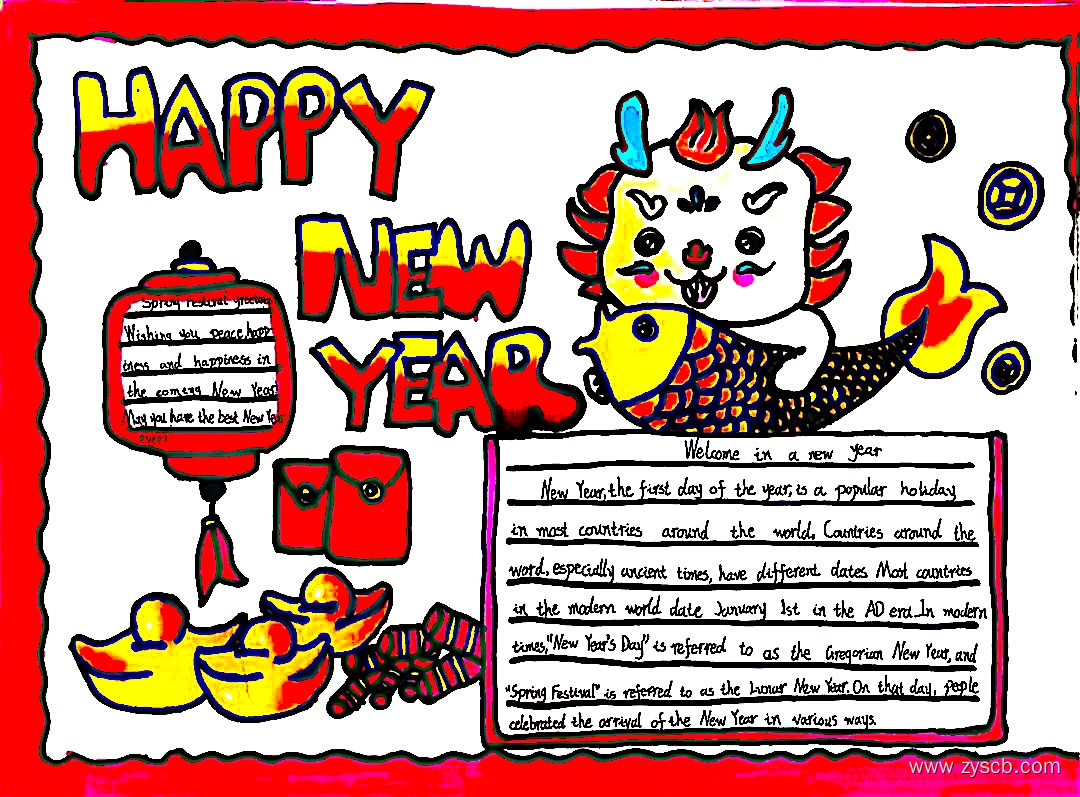 HAPPY
NEW
YEAR
Spring Festival greeting
Wishing you peace, happ
iness and happiness in
the coming New Year!
May you have the best New Year
ever!
Welcome in a new year
New Year, the first day of the year, is a popular holiday
in most countries around the world. Countries around the
word, especially ancient times, have different dates. Most countries
in the modern world date January 1st in the AD era. In modern
times, "New Year's Day" is referred to as the Gregorian New Year, and
"Spring Festival" is referred to as the Lunar New Year. On that day, people
celebrated the arrival of the New Year in various ways.
www.zyscb.com